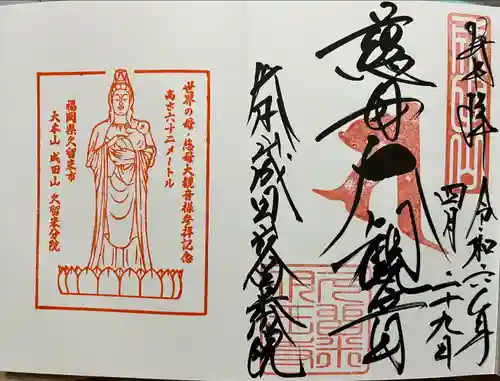 奉拝
令和六年
四月二十九日
慈母大観音
成田山久留米分院
世界の母・慈母大観音様参拝記念
高さ六十二メートル
福岡県久留米市
大本山 成田山 久留米分院